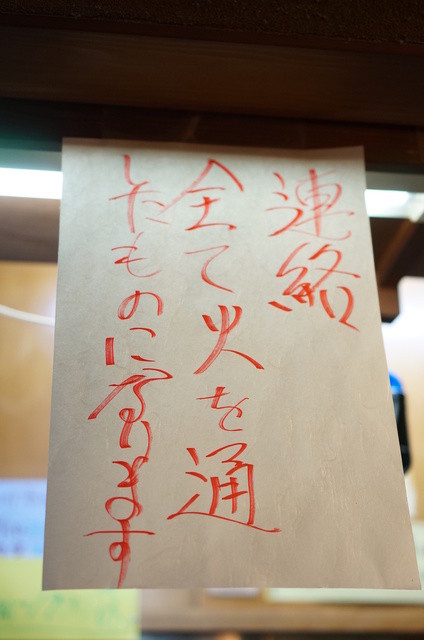 連絡
全て火を通
したものになります